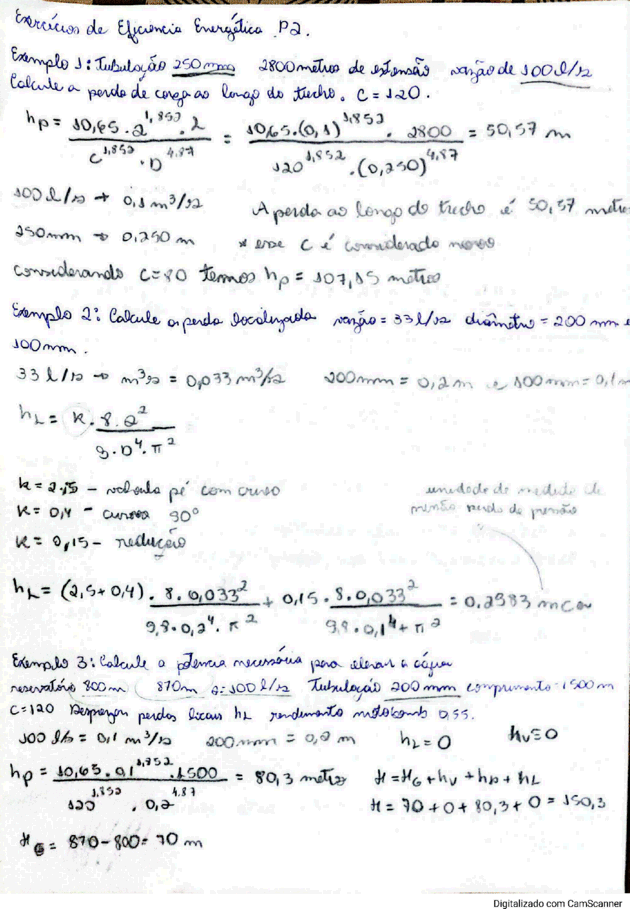 Exercícios de Eficiencia Energética P2.
Exemplo 1: Tubulação 250 mm 2800 metros de extensão vazão de 100 l/s
Calcule a perda de carga ao longo do trecho. C = 120.
hp = 10,65 . Q^1,852 . L / C^1,852 . D^4,87 = 10,65 . (0,1)^1,852 . 2800 / 120^1,852 . (0,250)^4,87 = 50,57 m
100 l/s → 0,1 m³/s A perda ao longo do trecho é 50,57 metro
250mm → 0,250 m * esse C é considerado novo
considerando C=80 temos hp = 107,15 metros
Exemplo 2: Calcule a perda localizada vazão = 33 l/s diâmetro = 200 mm e
100mm.
33 l/s → m³s = 0,033 m³/s 200mm = 0,2m e 100mm = 0,1m
hL = K . 8 . Q² / g . D⁴ . π²
K = 2,5 - valvula pé com crivo unidade de medida de
K = 0,4 - curva 90° perda de pressão
K = 0,15 - redução
hL = (2,5+0,4) . 8 . 0,033² / 9,8 . 0,2⁴ . π² + 0,15 . 8 . 0,033² / 9,8 . 0,1⁴ + π² = 0,2983 mca
Exemplo 3: Calcule a potencia necessária para elevar a água
reservatório 800m 870m Q=100 l/s Tubulação 200 mm comprimento 1500m
C=120 Desprezar perdas locais hL rendimento motobomb 0,55.
100 l/s = 0,1 m³/s 200mm = 0,2 m hL = 0 hv = 0
hp = 10,65 . 0,1^1,852 . 1500 / 120^1,852 . 0,2^4,87 = 80,3 metros H = HG + hv + hp + hL
H = 70 + 0 + 80,3 + 0 = 150,3
HG = 870 - 800 = 70 m
Digitalizado com CamScanner